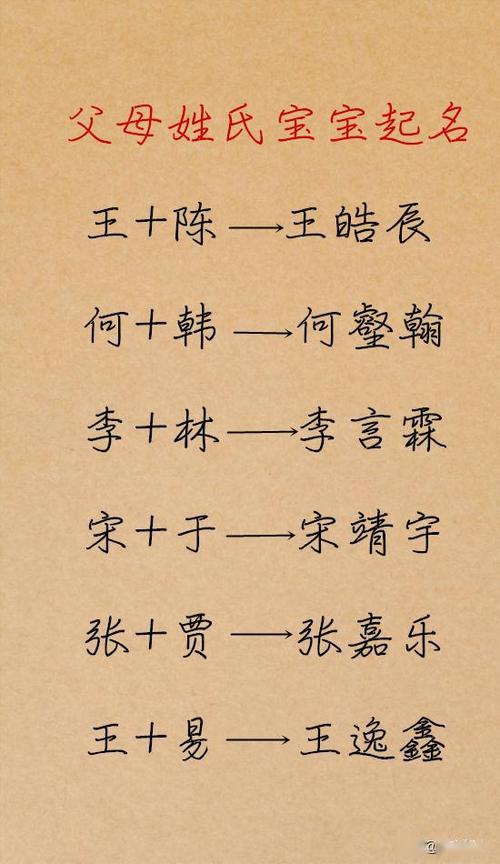 父母姓氏宝宝起名
王十陈→王皓辰
何十韩→何壑翰
李十林→李言霖
宋十于→宋靖宇
张十贾→张嘉乐
王十易→王逸鑫
@